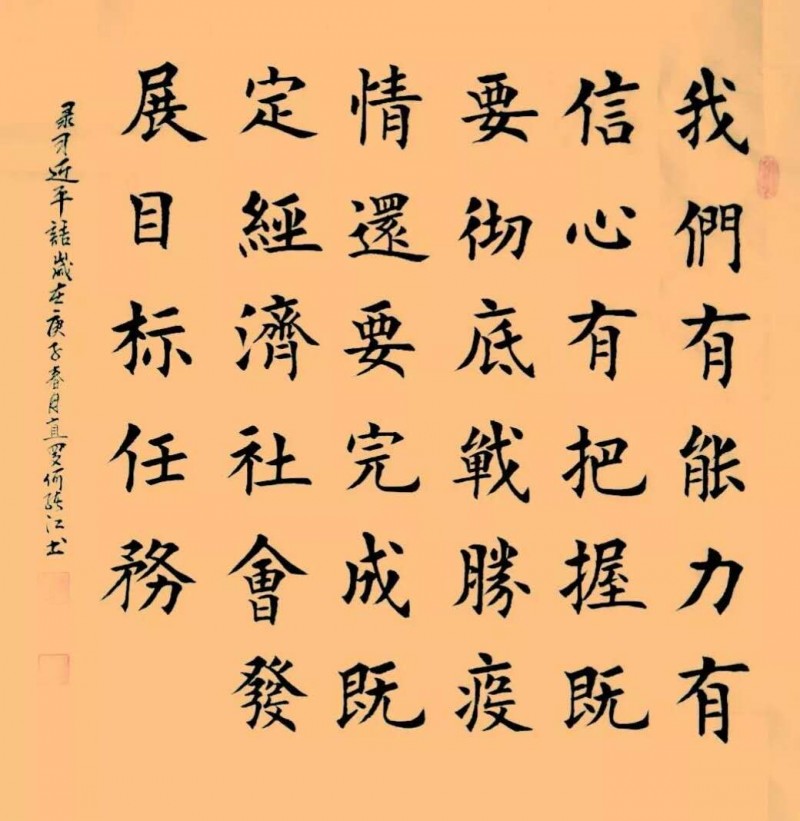 我們有能力有
信心有把握既
要彻底戰勝疫
情還要完成既
定經濟社會發
展目标任務
录习近平語歲在庚子春月直罗何张江书